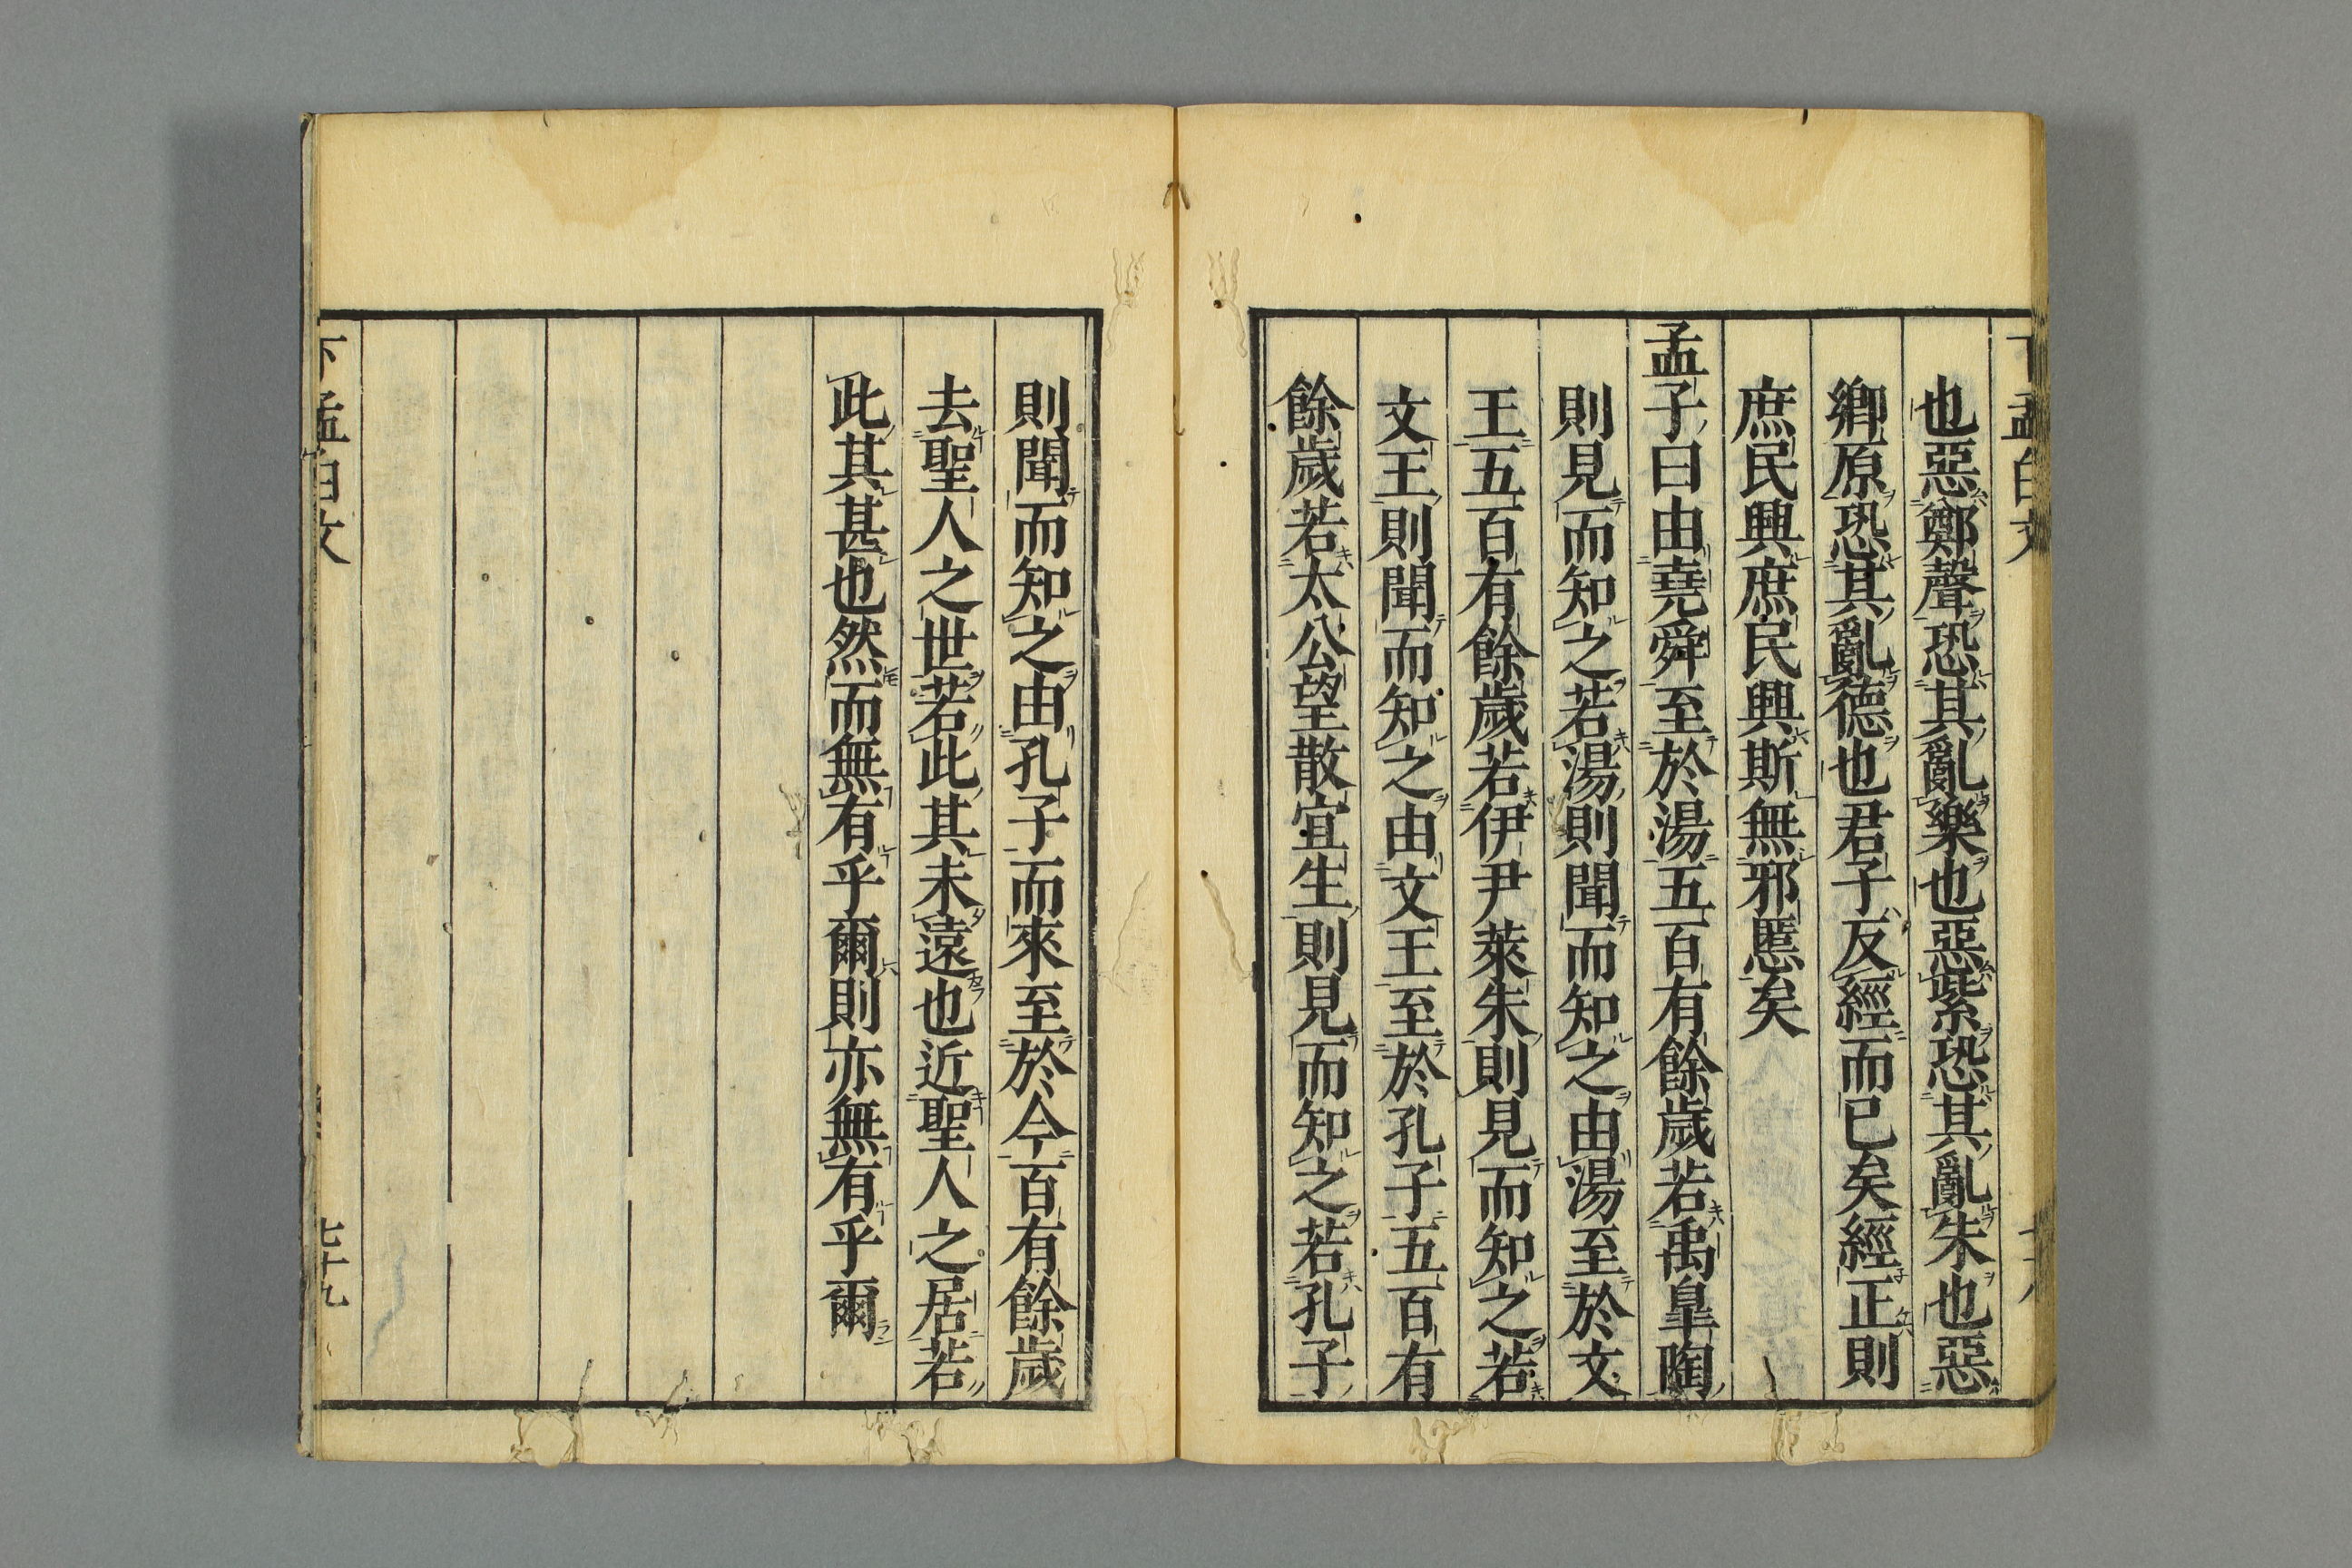 也惡鄭聲恐其亂樂也惡紫恐其亂朱也惡
鄉原恐其亂德也君子反經而已矣經正則
庶民興庶民興斯無邪慝矣
孟子曰由堯舜至於湯五百有餘歲若禹皐陶
則見而知之若湯則聞而知之由湯至於文
王五百有餘歲若伊尹萊朱則見而知之若
文王則聞而知之由文王至於孔子五百有
餘歲若太公望散宜生則見而知之若孔子
則聞而知之由孔子而來至於今百有餘歲
去聖人之世若此其未遠也近聖人之居若
此其甚也然而無有乎爾則亦無有乎爾
下孟白文
七十九